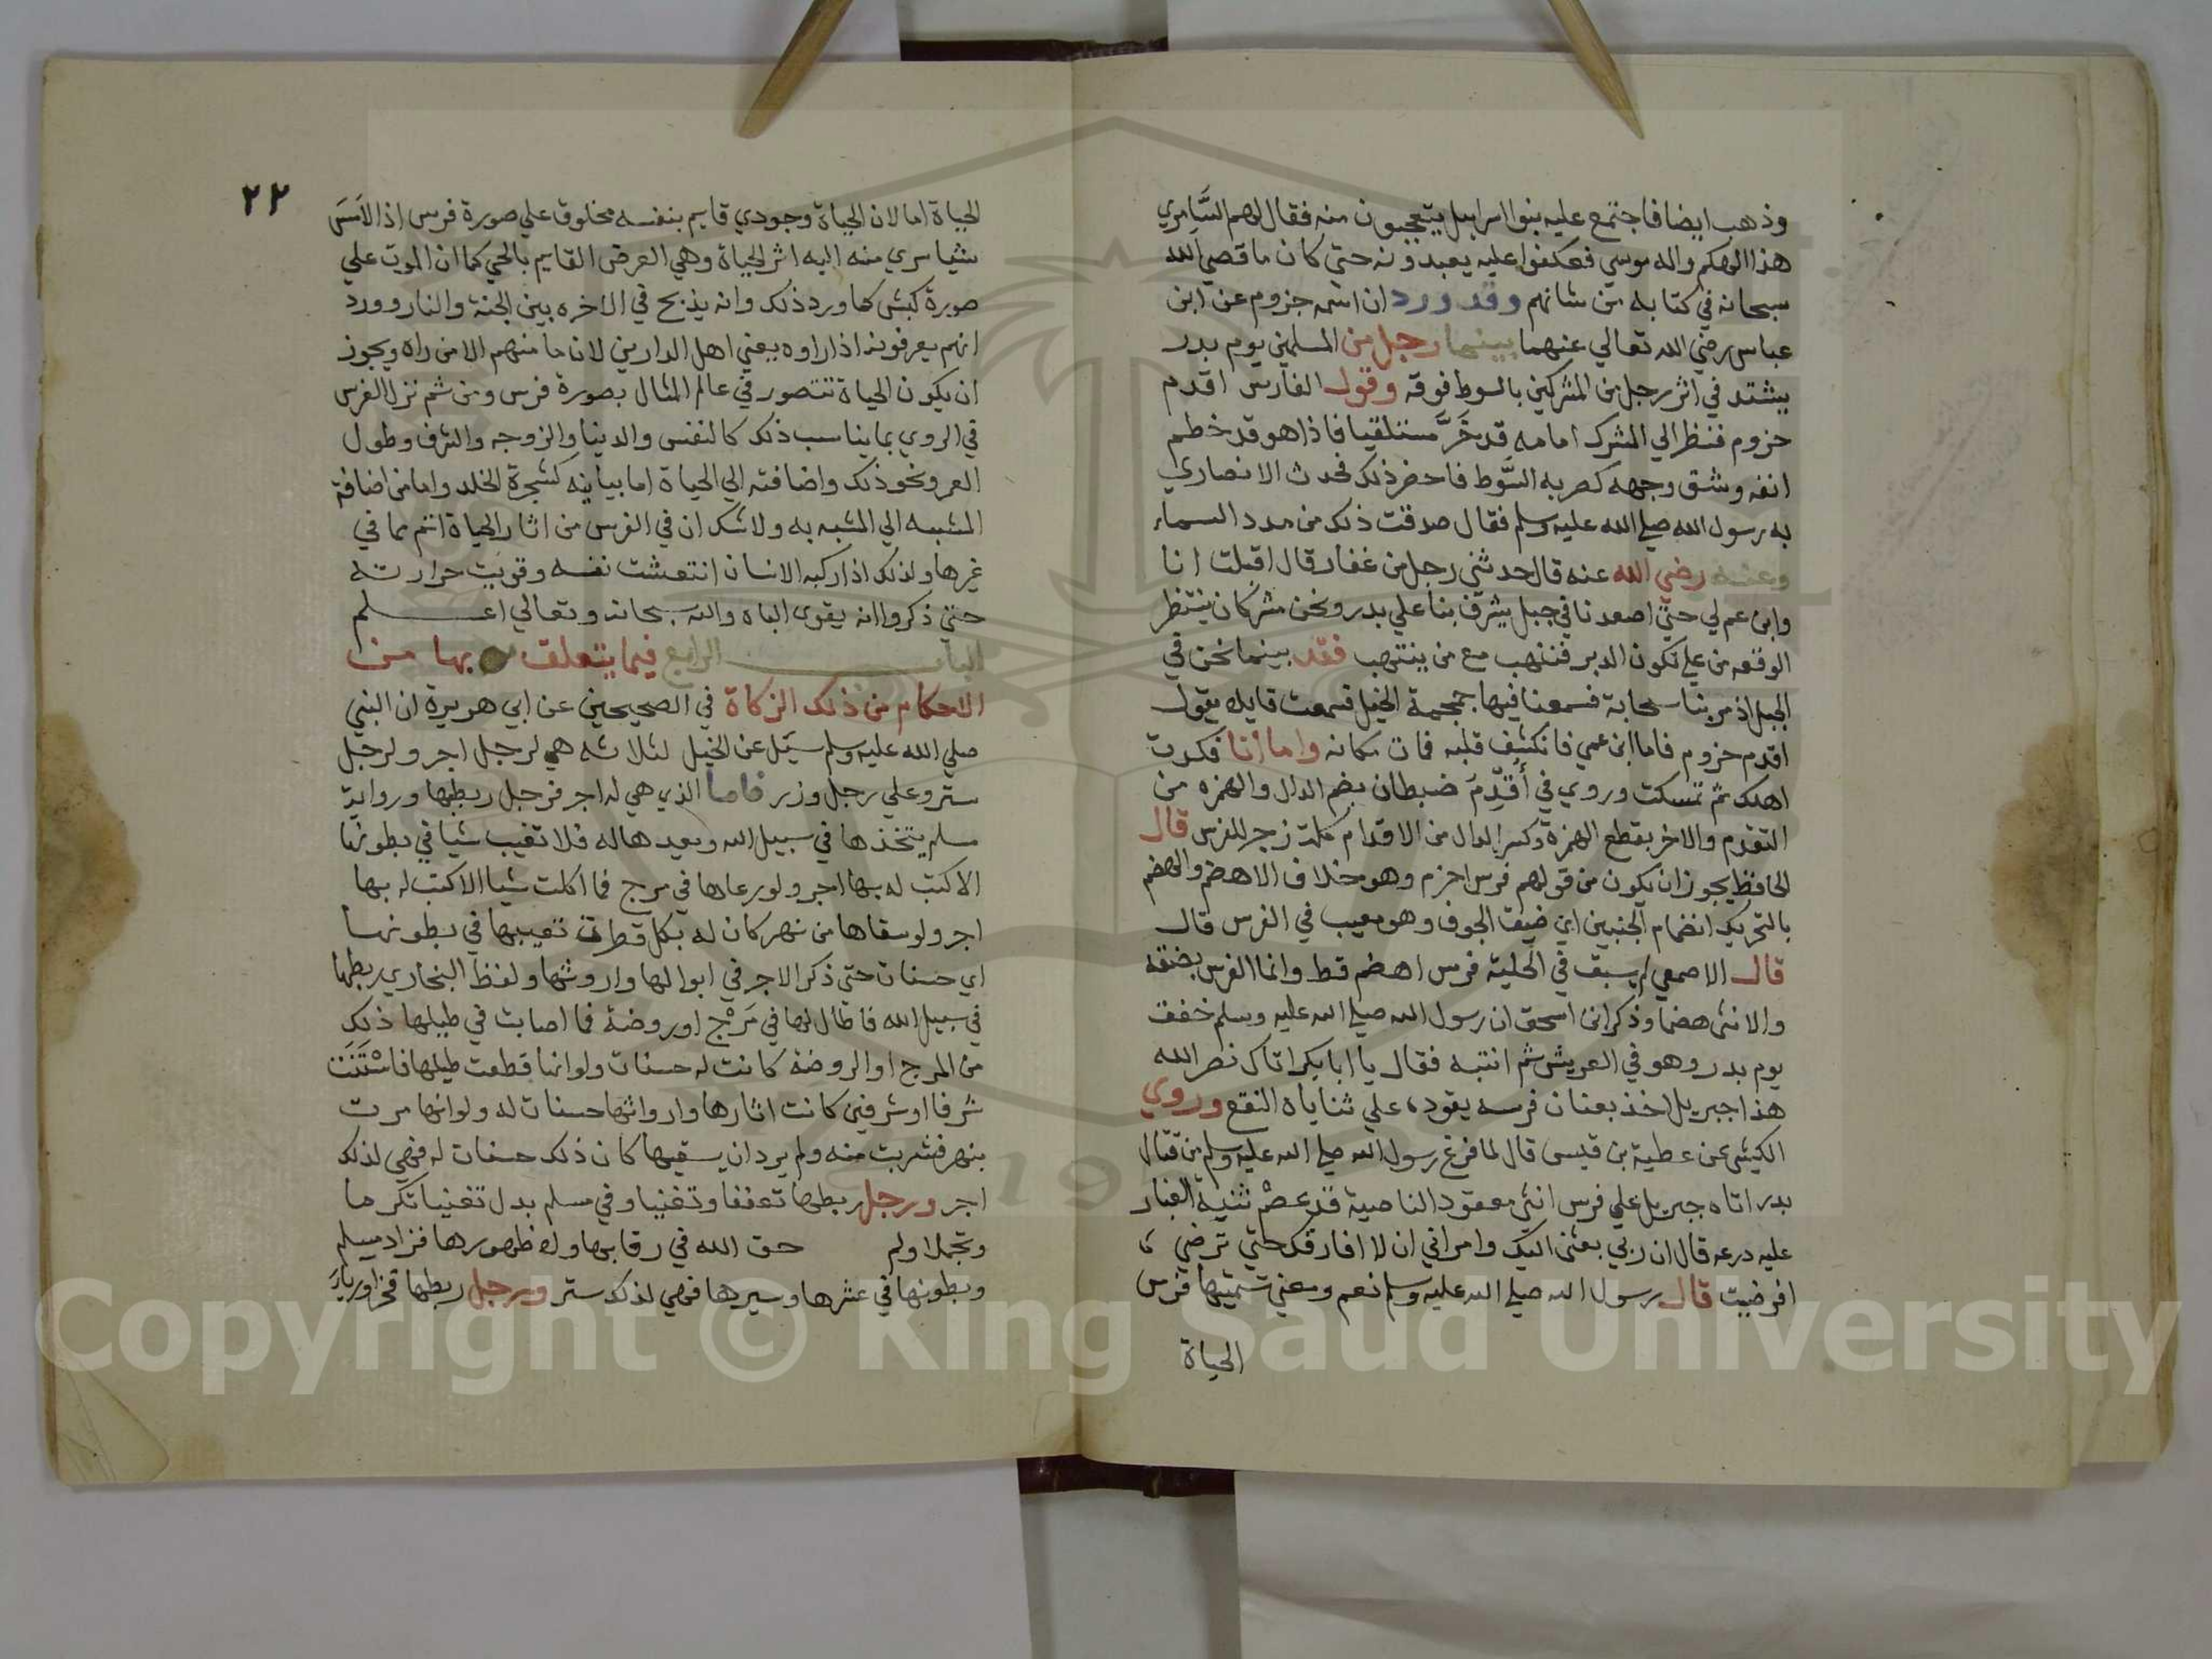 وذهب ايضا فاجتمع عليه بنوا اسراييل يتعجبون منه فقال لهم السَّامِري
هذا الهكم واله موسي فعكفوا عليه يعبدونه حتي كان ما قصي الله
سبحانه في كتابه من شانهم وقد ورد ان اسمه حزوم عن ابن
عباس رضي الله تعالي عنهما بينما رجل من المسلمين يوم بدر
يشتد في اثر رجل من المشركين بالسوط فوقه وقول الفارس اقدم
حزوم فنظر الي المشرك امامه قد خَرَّ مستلقيا فاذا هو قد خطم
انفه وشق وجهه كضربه السَّوط فاحضر ذلك فحدث الانصاري
به رسول الله صلي الله عليه وسلم فقال صدقت ذلك من مدد السماء
وعنه رضي الله عنه قال حدثني رجل من غفار قال اقبلت انا
وابن عم لي حتي اصعدنا في جبل يشرف بنا علي بدر ونحن مشركان ننتظر
الوقعه من علي تكون الدبر فننهب مع من ينتهب فقد بينما نحن في
الجبل اذ مر بنا سحابة فسمعنا فيها حمحمة الخيل فسمعت قايلا يقول
اقدم حزوم فاما ابن عمي فانكشف قلبه فمات مكانه واما انا فكدت
اهلك ثم تمسكت وروي في أقدِّمُ ضبطان بضم الدال والهمزه من
التقدم والاخر بقطع الهمزة وكسر الدال من الاقدام كلمة زجر للفرس قال
الحافظ يجوز ان يكون من قولهم فرس احزم وهو خلاف الاهضم والهضم
بالتحريك انضمام الجنبين اي ضيق الجوف وهو معيب في الفرس قال
قال الاصمعي لم يسبق في الحلبة فرس اهضم قط وانما الفرس بضنقه
والانثي هضما وذكر ابن اسحق ان رسول الله صلي الله عليه وسلم خفق
يوم بدر وهو في العريش ثم انتبه فقال يا ابا بكر اتاك نصر الله
هذا جبريل اخذ بعنان فرسه يقوده علي ثناياه النقع وروي
الكيثي عن عطية بن قيس قال لما فرغ رسول الله صلي الله عليه وسلم من قتال
بدر اتاه جبريل علي فرس انثي معقود الناصية قد عصم ثنيةَ الغبار
عليه درعه قال ان ربي بعثني اليك وامراني ان لا افارقك حتي ترضي
افرضيت قال رسول الله صلي الله عليه وسلم نعم ومعني تسميتها فرس
الحياة
٢٢
الحياة اما لان الحياة وجودي قايم بنفسه مخلوق علي صورة فرس اذا لاَمسَ
شيا سري منه اليه اثر الحياة وهي العرض القايم بالحي كما ان الموت علي
صورة كبش كما ورد ذلك وانه يذبح في الاخره بين الجنة والنار وورد
انهم يعرفونه اذا راوه يعني اهل الدارين لان ما منهم الا من راه ويجوز
ان يكون الحياة تتصور في عالم المثال بصورة فرس ومن ثم نزل الفرس
في الروي بما يناسب ذلك كالنفس والدينا والزوجه والشرف وطول
العمر ونحو ذلك واضافته الي الحياة اما بيانيه كشجرة الخلد واما من اضافة
المشبه الي المشبه به ولا شك ان في الفرس من اثار الحياة اتم مما في
غيرها ولذلك اذا ركبه الانسان انتعشت نفسه وقويت حرارته
حتي ذكروا انه يقوي الباه والله سبحانه وتعالي اعلم
الباب الرابع فيما يتعلق بها من
الاحكام من ذلك الزكاة في الصحيحين عن ابي هريرة ان النبي
صلي الله عليه وسلم سيَل عن الخيل لثلاثه هي لرجل اجر ولرجل
ستر وعلي رجل وزر فاما الذي هي له اجر فرجل ربطها ورواية
مسلم يتخذها في سبيل الله ويعيدها له فلا تغيب شيا في بطونها
الا كتب له بها اجر ولو رعاها في مرج فما اكلت شيا الا كتب له بها
اجر ولو سقاها من نهر كان له بكل قطرات تغيبها في بطونها
اي حسنات حتي ذكر الاجر في ابوالها واروثها ولفظ البخاري ربطها
في سبيل الله فاطال لها في مَرْج او روضة فما اصابت في طيلها ذلك
من المرج او الروضة كانت له حسنات ولو انها قطعت طيلها فاسْتَنَت
شرفا او شرفين كانت اثارها وارواثها حسنات له ولو انها مرت
بنهر فشربت منه ولم يرد ان يسقيها كان ذلك حسنات له فهي لذلك
اجر ورجل ربطها تعففا وتغنيا وفي مسلم بدل تغنيا تكرما
وتجملا ولم حق الله في رقابها ولا ظهورها فزاد مسلم
وبطونها في عشرها وسيرها فهي لذلك ستر ورجل ربطها فخرا ورياَ
Copyright © King Saud University